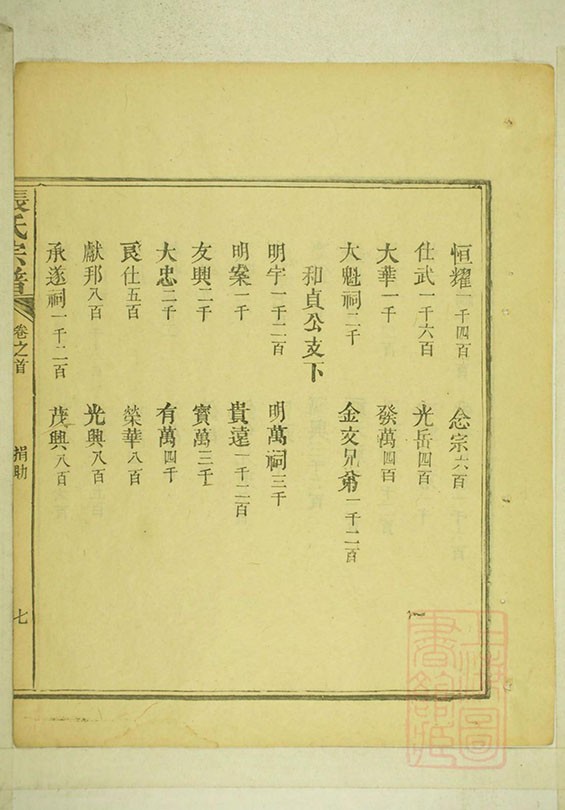 恒耀一千四百　念宗六百
仕武一千六百　光岳四百
大華一千　發萬四百
大魁祠二千　金支兄弟一千二百
和貞公支下
明宇一千二百　明萬祠三千
明案一千　貴遠一千二百
友興二千　寳萬三千
大忠二千　有萬四千
良仕五百　榮華八百
獻邦八百　光興八百
承遂祠一千二百　茂興八百
張氏宗譜　卷之首　捐助　七
上海圖書館藏